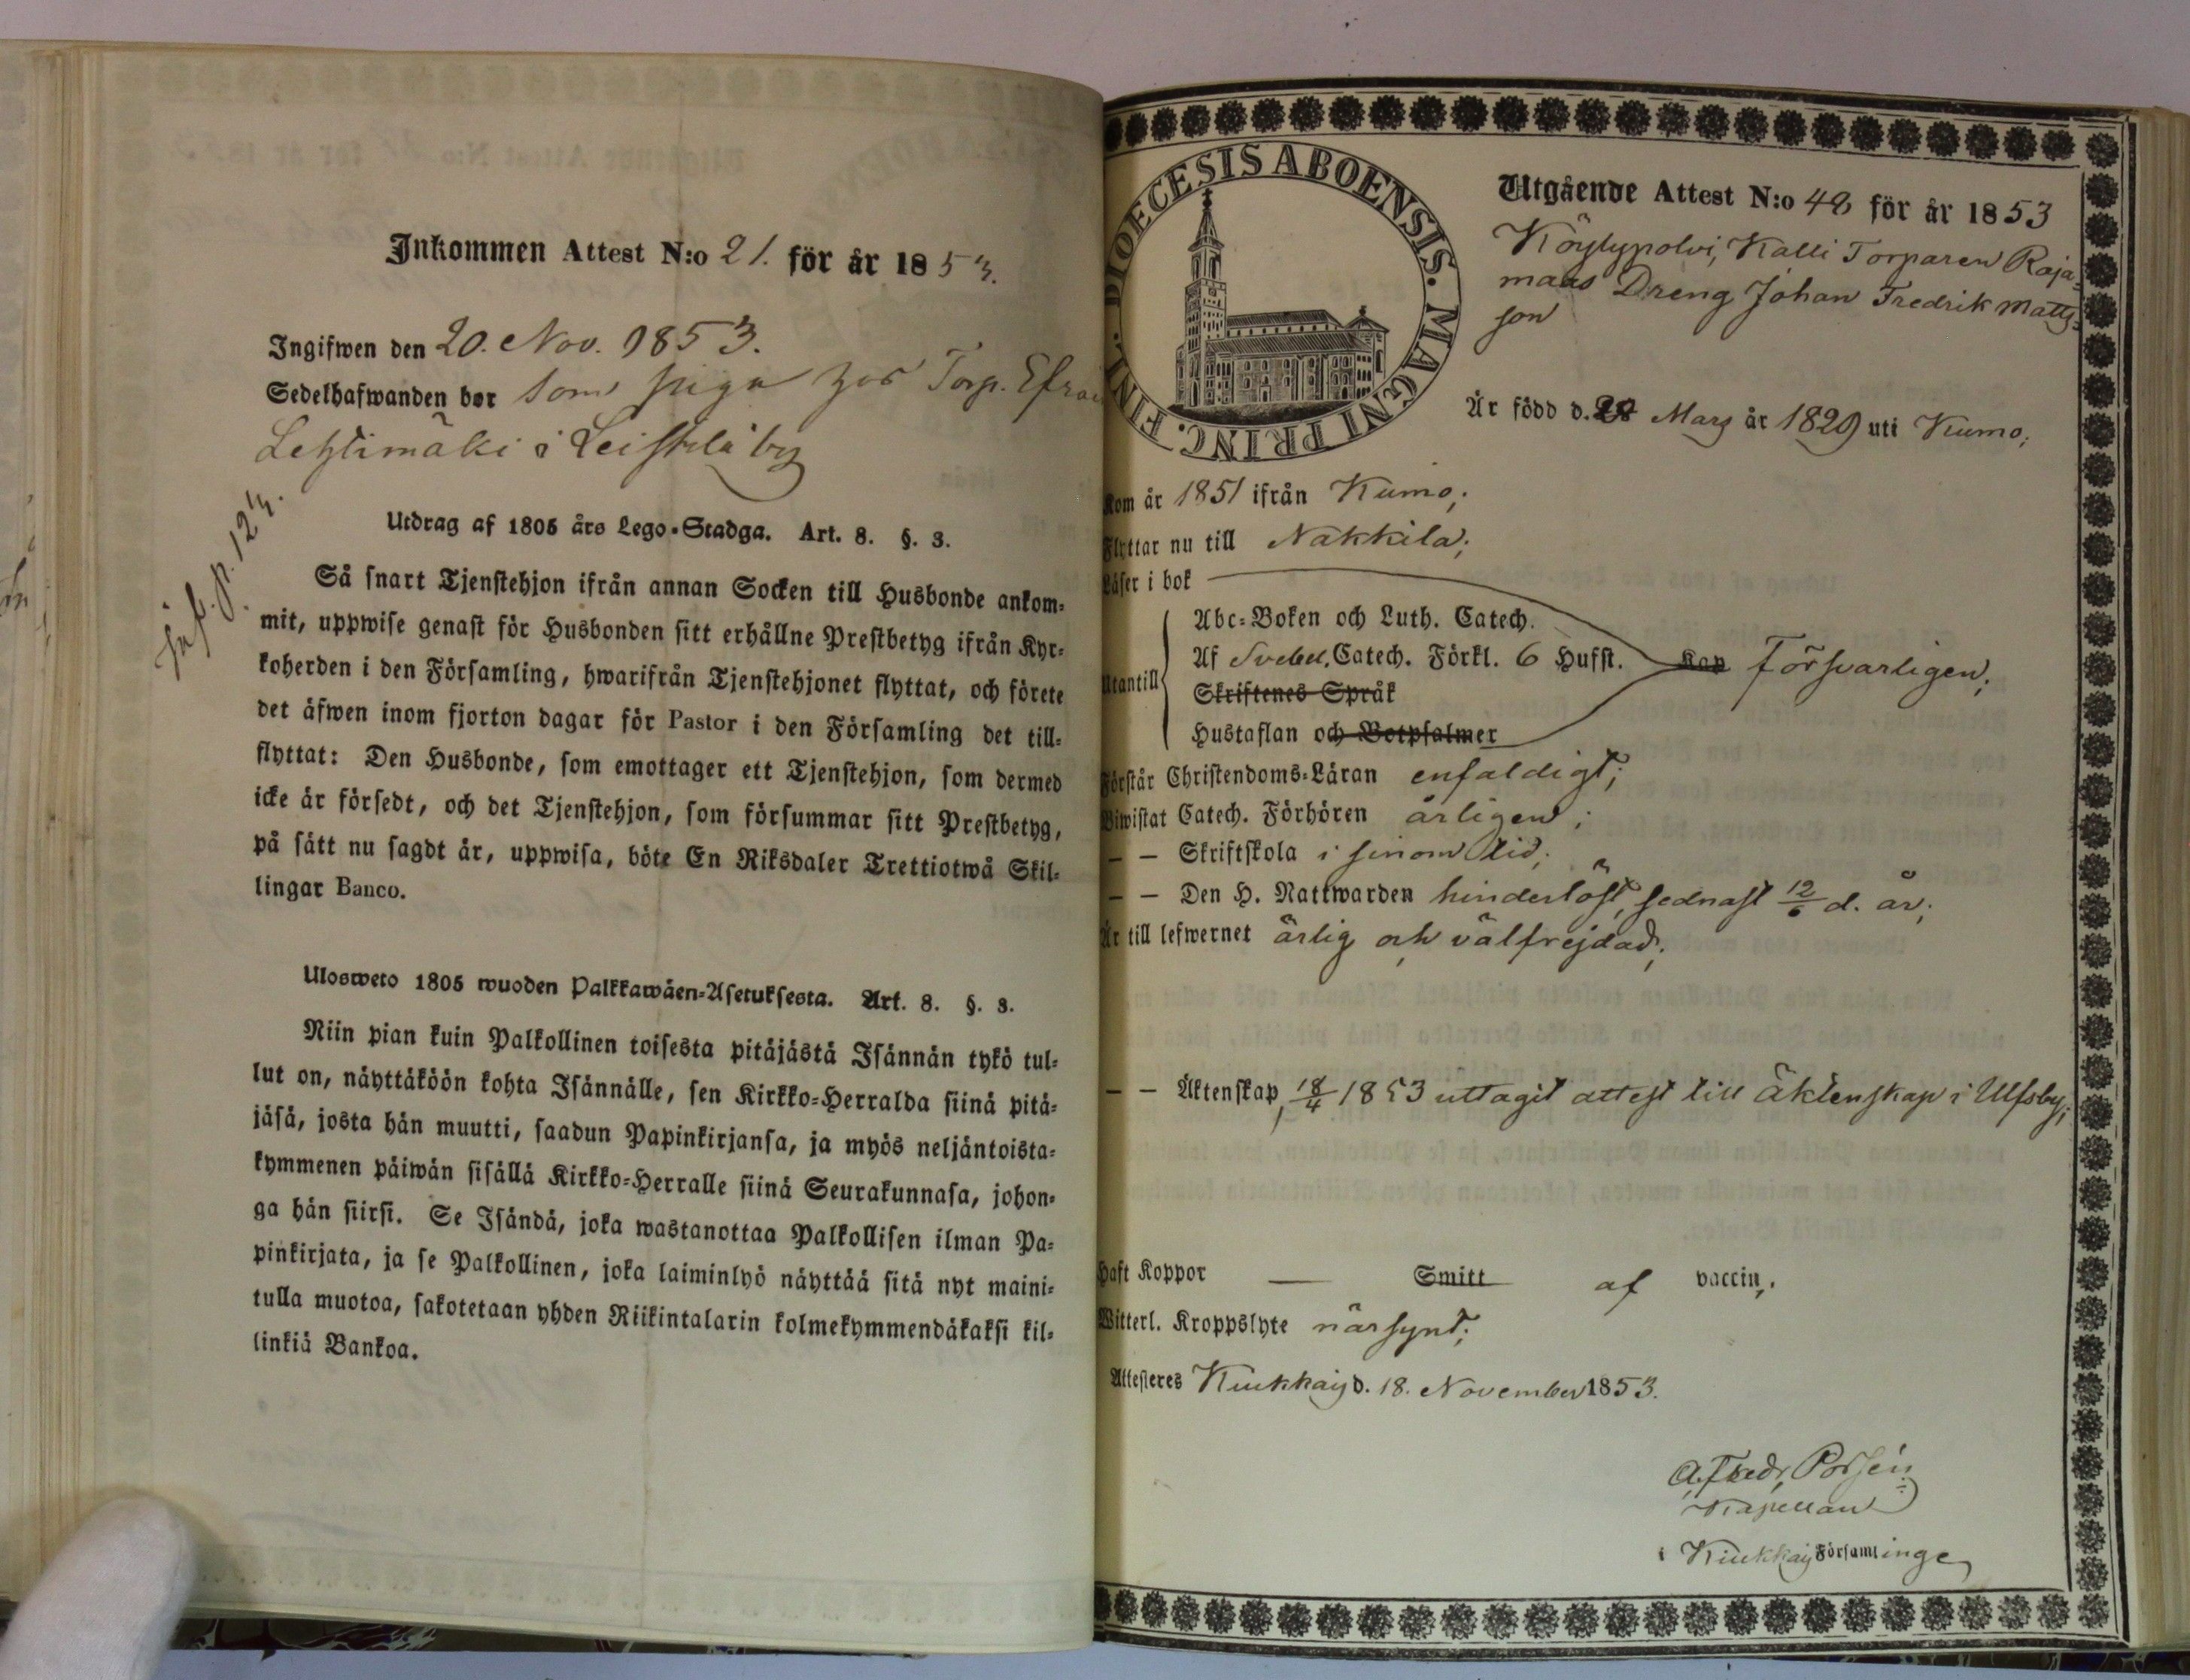 Inkommen Attest N:o 21. för år 1853.
Ingifwen den 20. Nov. 1853.
Sedelhafwanden bor som piga hos Torp. Efrai
Lehtimäki i Leistilä by
inf. p. 124.
Utdrag af 1805 års Lego-Stadga. Art. 8. §. 3.
Så snart Tjenstehjon ifrån annan Socken till Husbonde ankom-
mit, uppwise genast för Husbonden sitt erhållne Prestbetyg ifrån Kyr-
koherden i den Församling, hwarifrån Tjenstehjonet flyttat, och förete
det äfwen inom fjorton dagar för Pastor i den Församling det till-
flyttat: Den Husbonde, som emottager ett Tjenstehjon, som dermed
icke är försedt, och det Tjenstehjon, som försummar sitt Prestbetyg,
på sätt nu sagdt är, uppwisa, böte En Riksdaler Trettiotwå Skil-
lingar Banco.
Ulosweto 1805 wuoden Palkkawäen-Asetuksesta. Art. 8. §. 3.
Niin pian kuin Palkollinen toisesta pitäjästä Isännän tykö tul-
lut on, näyttäköön kohta Isännälle, sen Kirkko-Herralda siinä pitä-
jäsä, josta hän muutti, saadun Papinkirjansa, ja myös neljäntoista-
kymmenen päiwän sisällä Kirkko-Herralle siinä Seurakunnasa, johon-
ga hän siirsi. Se Isändä, joka wastanottaa Palkollisen ilman Pa-
pinkirjata, ja se Palkollinen, joka laiminlyö näyttää sitä nyt maini-
tulla muotoa, sakotetaan yhden Riikintalarin kolmekymmendäkaksi kil-
linkiä Bankoa.
DIOECESIS ABOENSIS. MAGNI PRINC. FINL.
Utgående Attest N:o 48 för år 1853
Köylypolvi, Kalli Torparen Raja-
maas Dreng Johan Fredrik Matts-
son
Är född d. 28 Mars år 1829 uti Kumo;
Kom år 1851 ifrån Kumo;
Flyttar nu till Nakkila;
Läser i bok
Abc-Boken och Luth. Catech.
Utantill Af Svebel. Catech. Förkl. 6 Hufst. Kap försvarligen;
Skriftenes Språk
Hustaflan och Botpsalmer
Förstår Christendoms-Läran enfaldigt;
Biwistat Catech. Förhören årligen;
— — Skriftskola i sinom tid;
— — Den H. Nattwarden hinderlöst, sednast 12/6 d. år;
Är till lefwernet ärlig och välfrejdad;
— — Äktenskap, 18/4 1853 uttagit attest till äktenskap i Ulfsby;
Haft Koppor — Smitt af vaccin;
Witterl. Kroppslyte närsynt;
Attesteres Kiukkais d. 18. November 1853.
A. Fredr. Porsén
Kapellan
i Kiukkais Församlinge